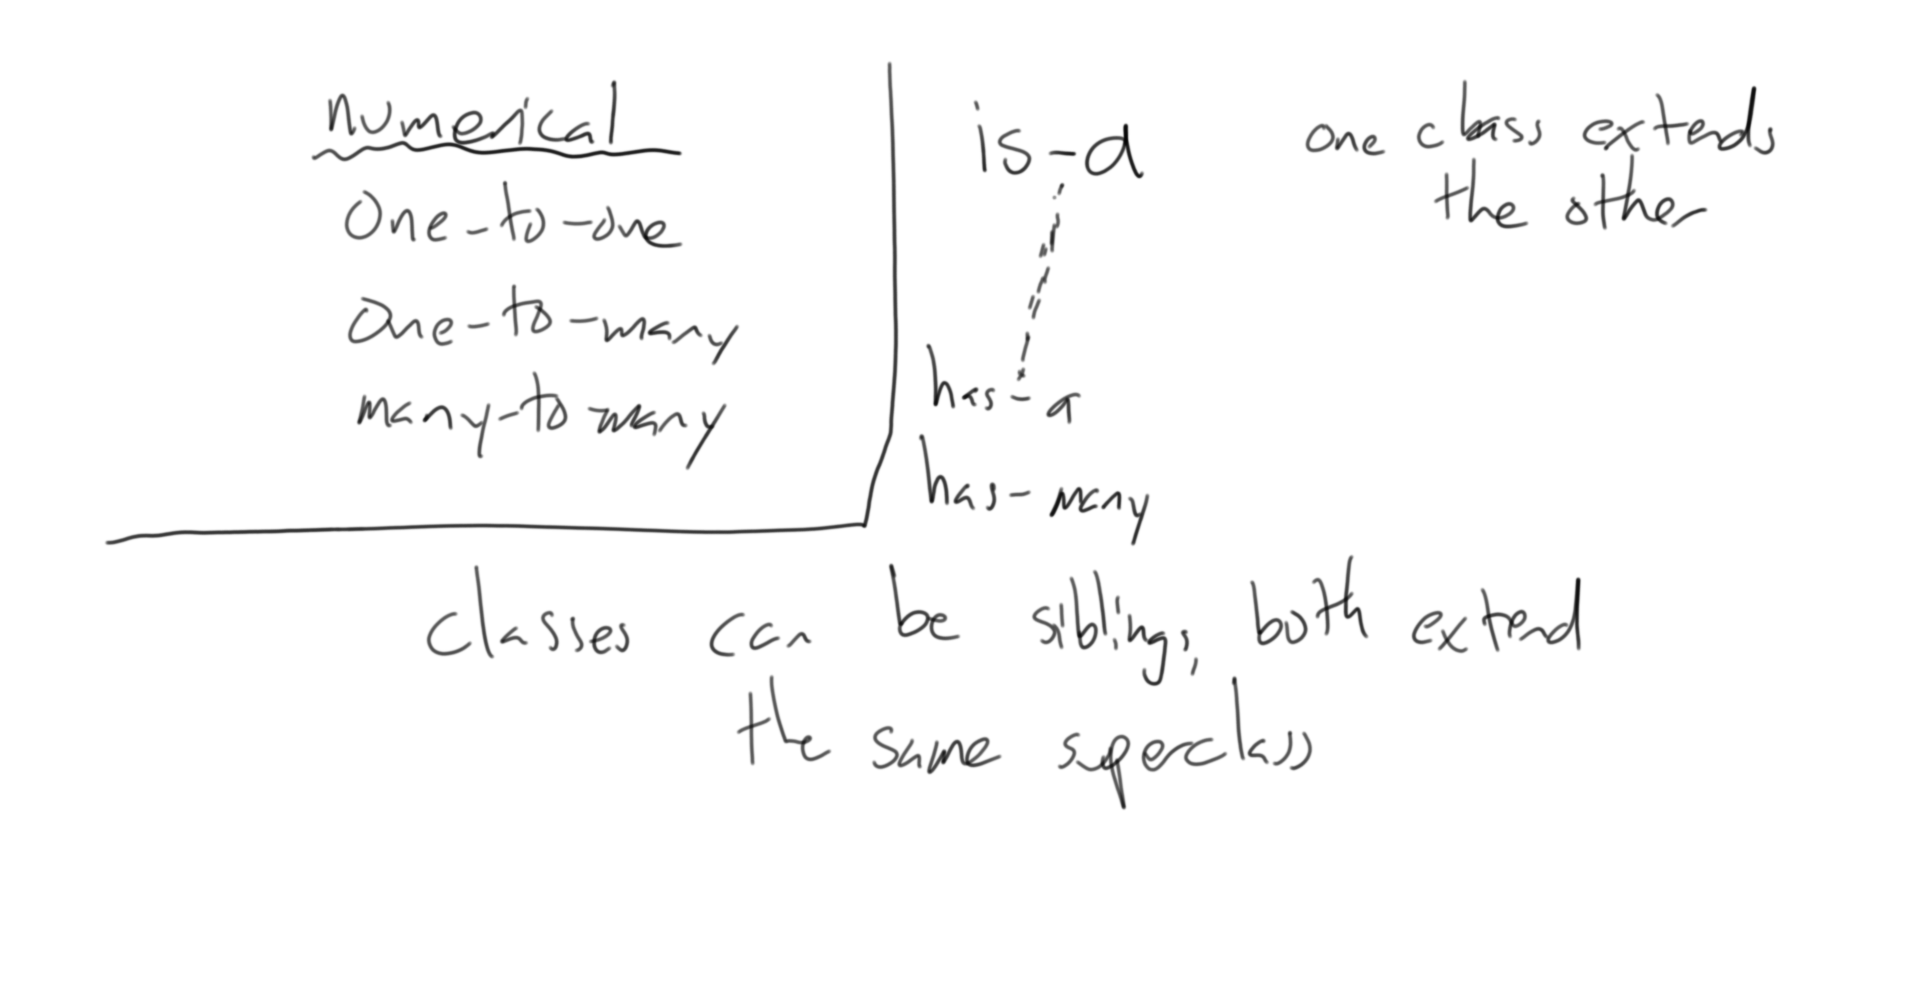 numerical
One-to-one
One-to-many
many-to-many
is-a
one class extends
the other
has-a
has-many
classes can be siblings, both extend
the same superclass